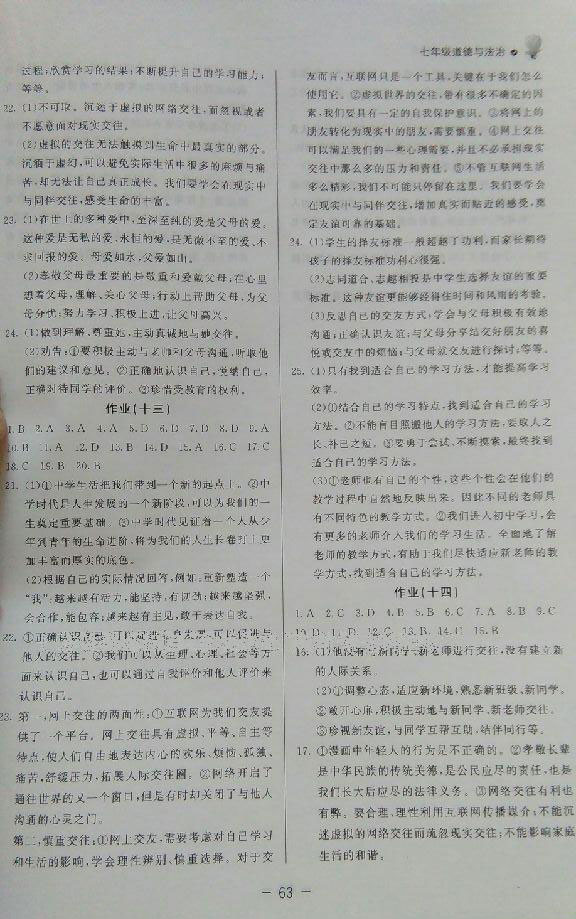 七年级道德与法治
过程;欣赏学习的结果;不断提升自己的学习能力;
等等。
22. (1)不可取。沉迷于虚拟的网络交往,而忽视或者
不愿意面对现实交往。
(2)虚拟的交往无法触摸到生命中最真实的部分。
沉湎于虚幻,可以避免实际生活中很多的麻烦与痛
苦,却无法让自己真正成长。我们要学会在现实中
与同伴交往,感受生命的丰富。
23. (1)在世上的多种爱中,至深至纯的爱是父母的爱。
这种爱是无私的爱、永恒的爱,是无微不至的爱、不
求回报的爱。母爱如水,父爱如山。
(2)孝敬父母最重要的是敬重和爱戴父母;在心里
想着父母,理解、关心父母;行动上帮助父母,为父
母分忧;努力学习,积极上进,让父母高兴。
24. (1)做到理解、尊重她,主动真诚地与她交往。
(2)劝告:①要积极主动与老师和父母沟通,听取他
们的建议和意见。②正确地认识自己,悦纳自己,
正确对待同学的评价。③珍惜受教育的权利。
作业(十三)
1. B 2. A 3. A 4. A 5. D 6. D 7. D 8. D 9. A
10. B 11. A 12. D 13. B 14. D 15. A 16. C 17. C
18. C 19. B 20. B
21. (1)①中学生活把我们带到一个新的起点上。②中
学时代是人生发展的一个新阶段,可以为我们的一
生奠定重要基础。③中学时代见证着一个人从少
年到青年的生命进阶,将为我们的人生长卷打上更
加丰富而厚实的底色。
(2)根据自己的实际情况回答,例如,重新塑造一个
“我”:越来越有活力,能坚持,有韧劲;越来越坚强,
会合作,能包容;越来越有主见,敢于表达自我。
22. ①正确认识自己,可以促进自我发展,可以促进与
他人的交往。②我们可以从生理、心理、社会等方
面来认识自己,也可以通过自我评价和他人评价来
认识自己。
23. 第一,网上交往的两面性:①互联网为我们交友提
供了一个平台。网上交往具有虚拟、平等、自主等
特点,使人们自由地表达内心的欢乐、烦恼、孤独、
痛苦,舒缓压力,拓展人际交往圈。②网络开启了
通往世界的又一个窗口,但是有时却关闭了与他人
沟通的心灵之门。
第二,慎重交往:①网上交友,需要考虑对自己学习
和生活的影响,学会理性辨别、慎重选择。对于交
友而言,互联网只是一个工具,关键在于我们怎么
使用它。②虚拟世界的交往,带有很多不确定的因
素,我们要具有一定的自我保护意识。③将网上的
朋友转化为现实中的朋友,需要慎重。④网上交往
可以满足我们的一些心理需要,并且不必承担现实
交往中那么多的压力和责任。⑤不管互联网生活
多么精彩,我们不能只停留在这里。我们要学会
在现实中与同伴交往,增加真实而贴近的感受,奠
定友谊可靠的基础。
24. (1)学生的择友标准一般超越了功利,而家长期待
孩子的择友标准功利心很强。
(2)志同道合、志趣相投是中学生选择友谊的重要
标准。这种友谊更能够经得住时间和风雨的考验。
(3)反思自己的交友方式;学会与父母积极有效地
沟通;正确认识友谊;与父母分享结交好朋友的喜
悦或交友中的烦恼;与父母就交友进行探讨;等等。
25. (1)只有找到适合自己的学习方法,才能提高学习
效率。
(2)①结合自己的学习特点,找到适合自己的学习
方法。②不能盲目照搬他人的学习方法,要取人之
长、补己之短。③要勇于尝试、不断摸索,最终找到
适合自己的学习方法。
(3)①老师也有自己的个性,这些个性会在他们的
教学过程中自然地反映出来。因此不同的老师具
有不同特色的教学方式。②我们进入初中学习,会
有更多的老师介入我们的学习生活。全面地了解
老师的教学方式,有助于我们尽快适应新老师的教
学方式,找到适合自己的学习方法。
作业(十四)
1. A 2. C 3. D 4. B 5. B 6. C 7. A 8. B 9. C
10. D 11. D 12. C 13. B 14. C 15. B
16. (1)他没有与新同学、新老师进行交往,没有建立新
的人际关系。
(2)①调整心态,适应新环境,熟悉新班级、新同学。
②敞开心扉,积极主动地与新同学、新老师交往。
③珍视新友谊,与同学互帮互助、结伴同行等。
17. ①漫画中年轻人的行为是不正确的。②孝敬长辈
是中华民族的传统美德,是公民应尽的责任,也是
我们长大后应尽的法律义务。③网络交往有利也
有弊。要合理、理性利用互联网传播媒介;不能沉
迷虚拟的网络交往而疏忽现实交往;不能影响家庭
生活的和谐。
— 63 —